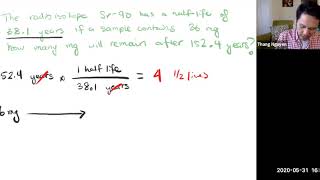 The radioisotope Sr-90 has a half life of
38.1 years if a sample contains 36 mg
how many mg will remain after 152.4 years?
52.4 years × 1 half life / 38.1 years = 4 1/2 lives
6 mg
Thang Nguyen
2020-05-31 16